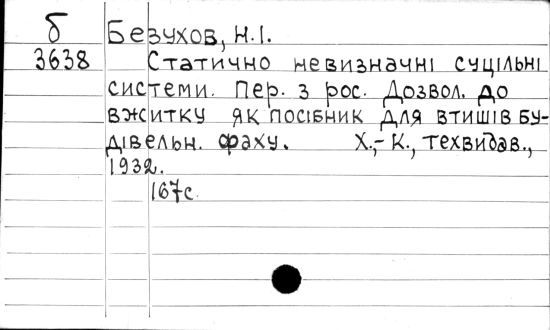 б
Безухов, Н.І.
3638
Статично невизначні суцільні
системи. Пер. з рос. Дозвол. до
вжитку як посібник для втишів бу-
дівельн. фаху. Х.,-К., техвидав.,
1932.
167с.